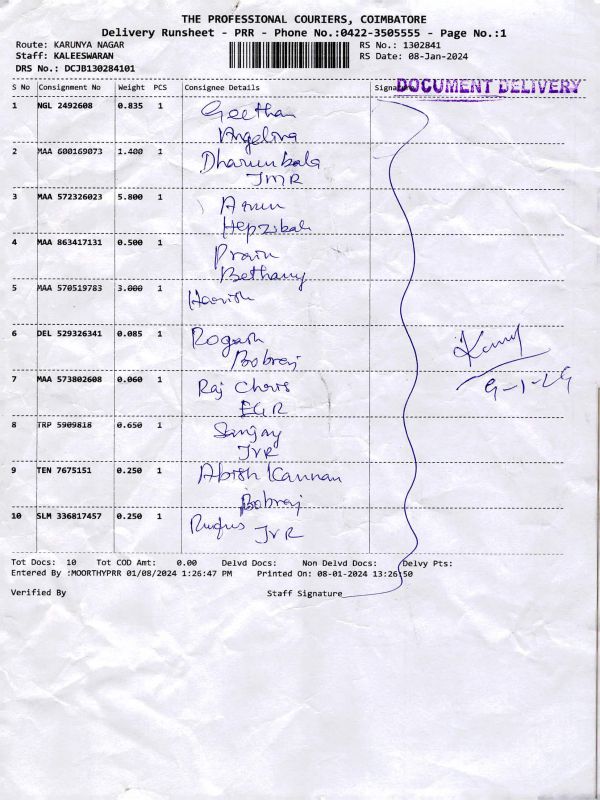 THE PROFESSIONAL COURIERS, COIMBATORE
Delivery Runsheet - PRR - Phone No.:0422-3505555 - Page No.:1
Route: KARUNYA NAGAR RS No.: 1302841
Staff: KALEESWARAN RS Date: 08-Jan-2024
DRS No.: DCJB130284101
S No Consignment No Weight PCS Consignee Details
DOCUMENT DELIVERY
1 NGL 2492608 0.835 1 Geetha
Angelina
2 MAA 600169073 1.400 1 Dharun bala
JMR
3 MAA 572326023 5.800 1 Arun
Hepzibah
4 MAA 863417131 0.500 1
Bethany
5 MAA 570519783 3.000 1 Harish
6 DEL 529326341 0.085 1 Rogash
Bobraj
7 MAA 573802608 0.060 1 Raj Chris
EGR
8 TRP 5909818 0.650 1 Sanjay
JVR
9 TEN 7675151 0.250 1 Abish Kannan
Bobraj
10 SLM 336817457 0.250 1 Rufus
JVR
9-1-24
Tot Docs: 10 Tot COD Amt: 0.00 Delvd Docs: Non Delvd Docs: Delvy Pts:
Entered By :MOORTHYPRR 01/08/2024 1:26:47 PM Printed On: 08-01-2024 13:26:50
Verified By Staff Signature